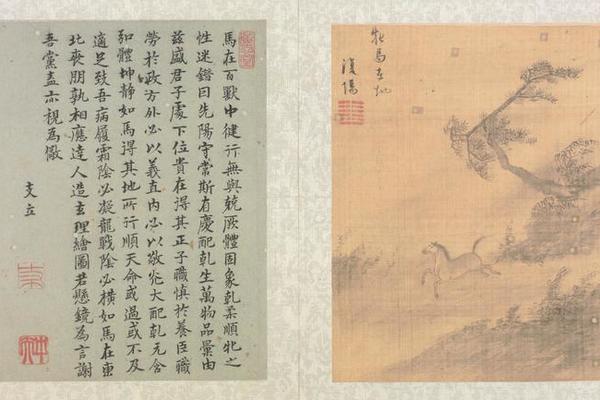 牝馬在地
復陽
馬在百獸中健行無與競厥體固象乾柔順牝之
性迷錯曰先陽守常斯有慶配乾生萬物品彙由
茲盛君子處下位貴在得其正子職慎於養臣職
勞於政方外必以義直內必以敬光大配乾元含
弘體坤靜如馬得其地所行順天命或過或不及
適足致吾病履霜陰必凝龍戰陰必橫如馬在東
北喪朋孰相應達人造玄理繪圖若懸鏡為言謝
吾黨盍亦視為儆
支立